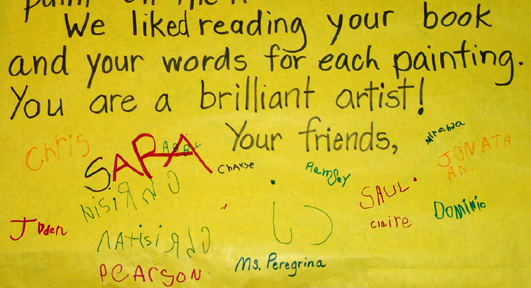 paint on the
We liked reading your book
and your words for each painting.
You are a brilliant artist!
Your friends,
Chris
SARA
ABBY
Chase
Ramsey
JONATH
AN.
SAUL.
claire
Dominic
Jaden
PEARSON
Ms. Peregrina